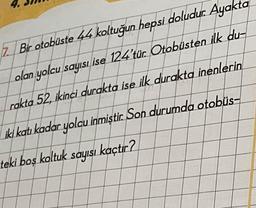 7. Bir otobüste 44 koltuğun hepsi doludur. Ayakta
olan yolcu sayısı ise 124'tür. Otobüsten ilk du-
rakta 52, ikinci durakta ise ilk durakta inenlerin
iki katı kadar yolcu inmiştir. Son durumda otobüs-
teki boş koltuk sayısı kaçtır?